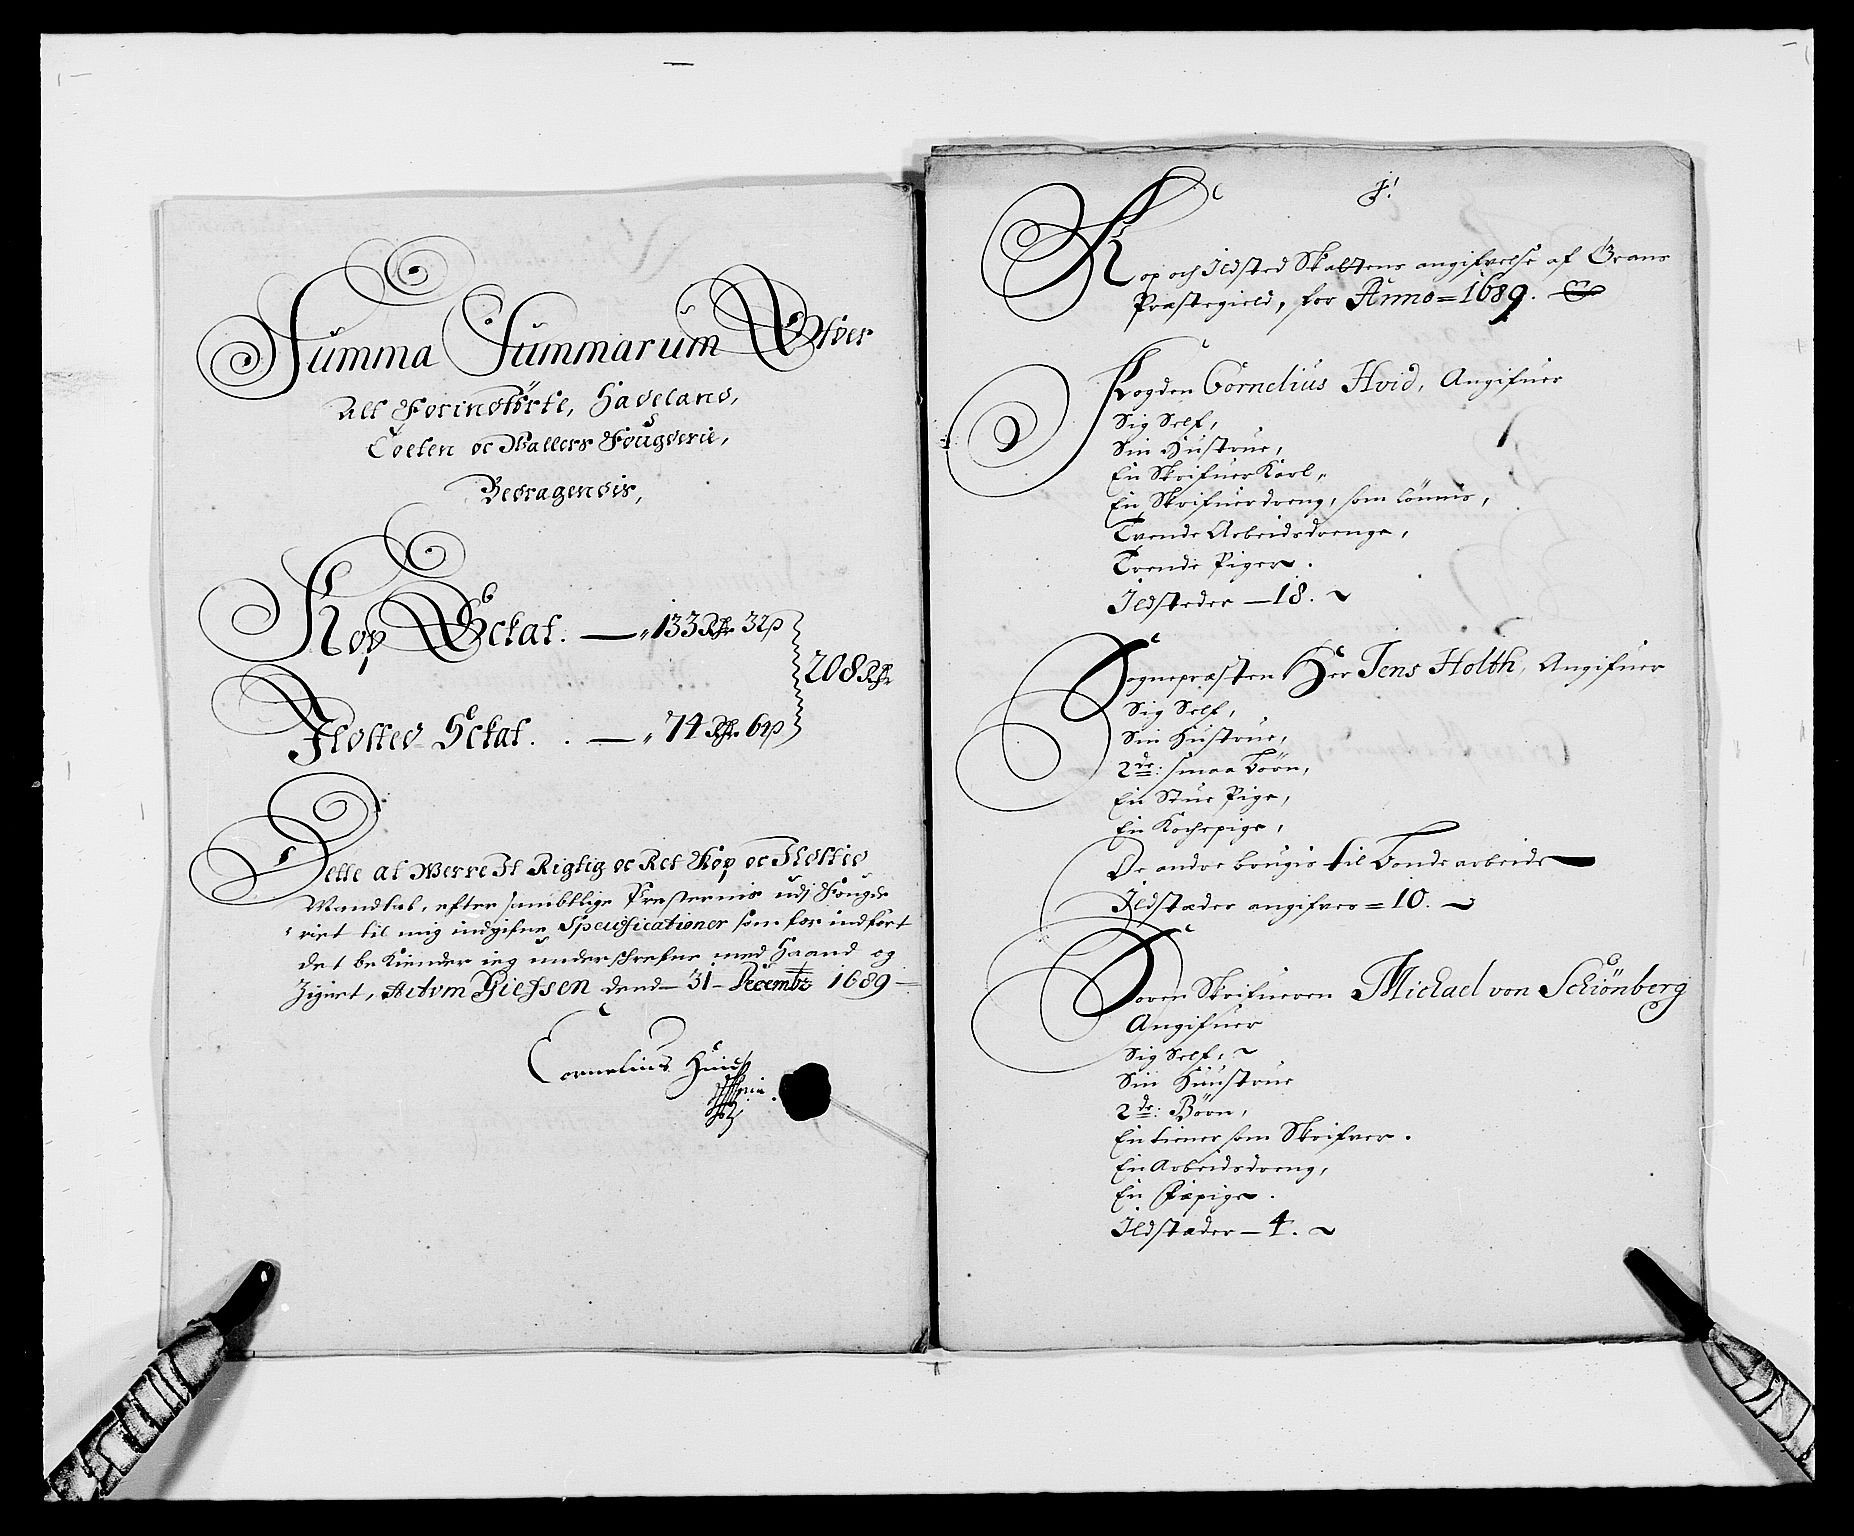 Summa Summarum Ofver
All Forindførte, Hadeland,
Toeten oc Wallers Fougderie,
Bedragendis,
Kop Schat. — „133 Rdr 32 s
208 Rdr
Ildsted Schat. . — „74 Rdr 64 s
Dette at Werre Et Rigtig oc Ret Kop oc Ildsted
Mandtal, efter sambtlige Presternis udj Fougde
riet til mig indgifne Specificationer som for indført
det bekiender ieg underschrefne med Haand og
Zignet, Actum Gießen dend 31 Decembr 1689 —
Cornelius Huid
1.
Kop och Ildsted Skattens angifvelse af Grans
Præstegield, for Anno = 1689.
Fogden Cornelius Hvid, Angifuer
Sig Self,
Sin Hustrue,
En Skrifuer Karl,
En Skrifuerdreng, som lønnis,
Trende Arbeidsdrenge,
Trende Piger.
Ildsteder — 18.
Sognepræsten Her Jens Holth, Angifuer
Sig Self,
Sin Hustrue,
2de: smaa Børn,
En Stue Pige,
En Kochepige,
De andre brugis til Bonde arbeide
Ildstæder angifves = 10.
Soren Skrifueren Michael von Schiönberg
Angifuer
Sig Self,
Sin Huustrue
2de: Børn,
En tiener som Skrifver.
En Arbeidsdreng,
En Fæpige.
Ildstæder — 4.